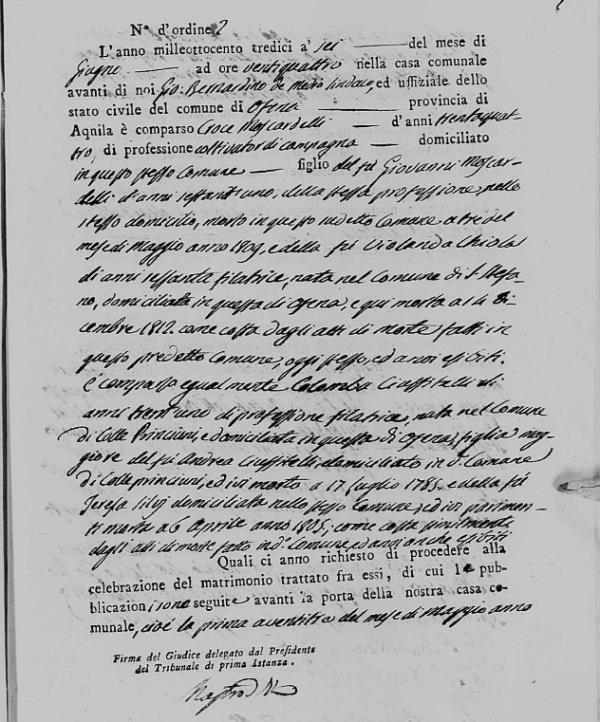 N.o d'ordine 2
L'anno milleottocento tredici a' sei del mese di
Giugno ad ore ventiquattro nella casa comunale
avanti di noi Gio: Bernardino de Medio Sindaco, ed uffiziale dello
stato civile del comune di Ofena provincia di
Aquila è comparso Croce Moscardelli d'anni trentaquat-
tro, di professione coltivator di campagna domiciliato
in questo stesso Comune figlio del fù Giovanni Moscar-
delli d'anni sessant'uno, della stessa professione, nello
stesso domicilio, morto in questo sudetto Comune a tre del
mese di Maggio anno 1809, e della fù Violanda Chiola
di anni sessanta filatrice, nata nel Comune di S. Stefa-
no, domiciliata in questa di Ofena, e qui morta a 14 di-
cembre 1812. come costa dagli atti di morte fatti in
questo predetto Comune, oggi stesso, ed a noi esibiti.
E' comparsa egualmente Colomba Ciuffitelli di
anni trent'uno di professione filatrice, nata nel Comune
di Colle Princiuni, e domiciliata in questa di Ofena, figlia mag-
giore del fù Andrea Ciuffitelli, domiciliato in d.o Comune
di Colle princiuni, ed ivi morto a 17 luglio 1785, e della fù
Teresa Silvj domiciliata nello stesso Comune, ed ivi parimen-
ti morta a 6 Aprile anno 1805; come costa similmente
dagli atti di morte fatto in d.o Comune, ed a noi anche esibiti
Quali ci anno richiesto di procedere alla
celebrazione del matrimonio trattato fra essi, di cui le pub-
blicazioni sono seguite avanti la porta della nostra casa co-
munale, cioè la prima a ventitre del mese di Maggio anno
Firma del Giudice delegato dal Presidente
del Tribunale di prima Istanza.